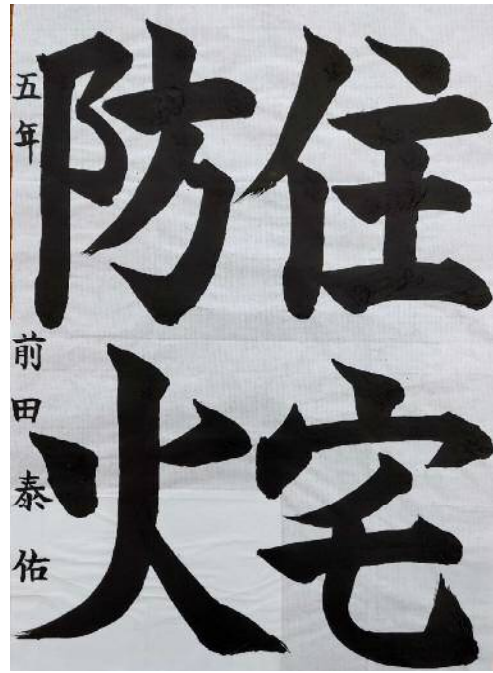 住宅
防火
五年 前田泰佑